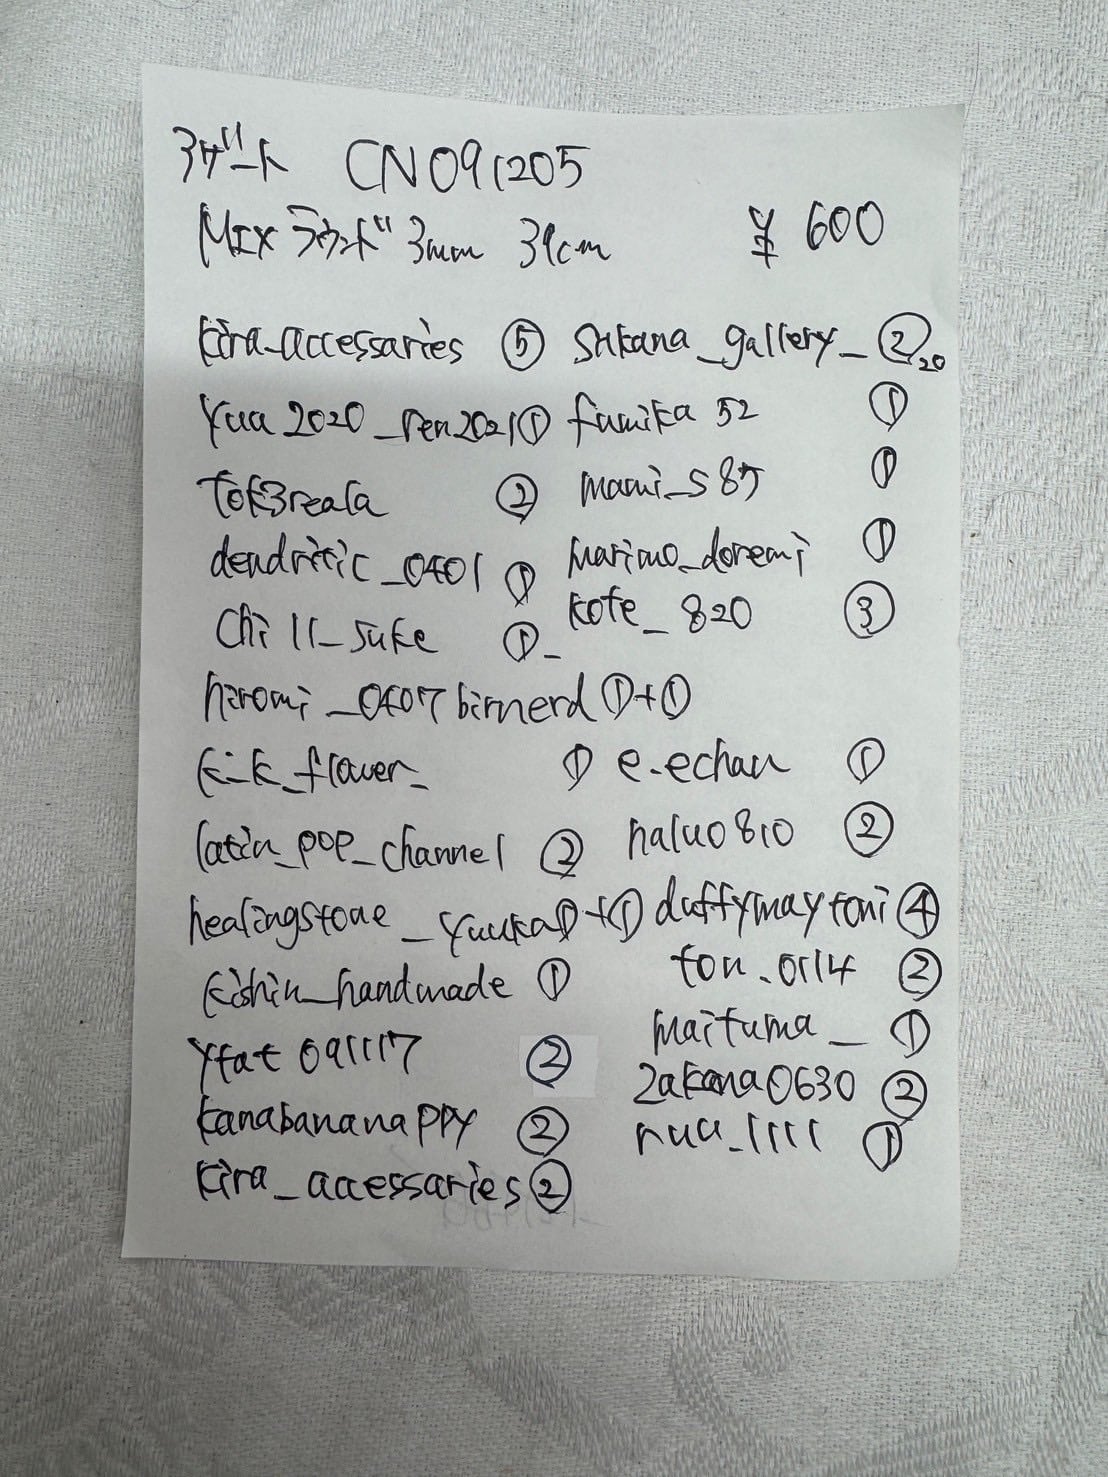 アゲート CN091205
MIX ラウンド 3mm 39cm ¥600
kira_accessaries ⑤ sukana_gallery_ ②20
yua2020_ren2021 ① fumika52 ①
tok3reala ② mami_s85 ①
dendritic_0401 ① marimo_doremi ①
chill_suke ①_ kote_820 ③
hiromi_0407birnerd ①+①
k-k_flower_ ① e.echan ①
latin_pop_channel ② halu0810 ②
healingstone_yuuka①+① duffymaytoni ④
kishin_handmade ① ton.0114 ②
yfat091117 ② maituma_ ①
kanabananappy ② zakana0630 ②
kira_accessaries ② nua_1111 ①